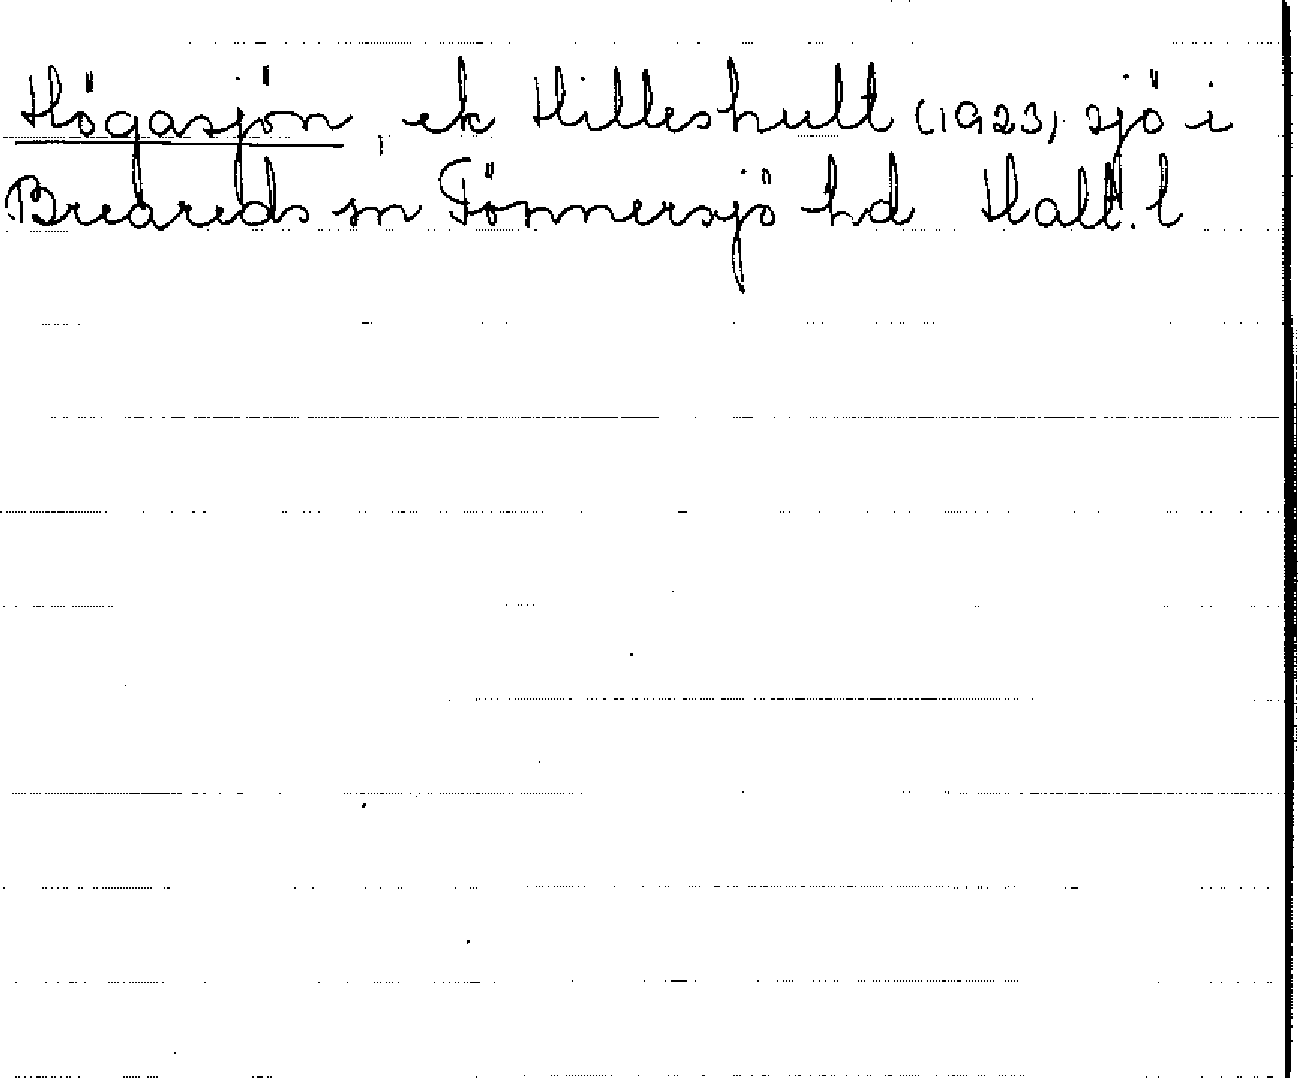 Högasjön, ek Hilleshult (1923) sjö i
Breareds sn Tönnersjö hd Hall. l